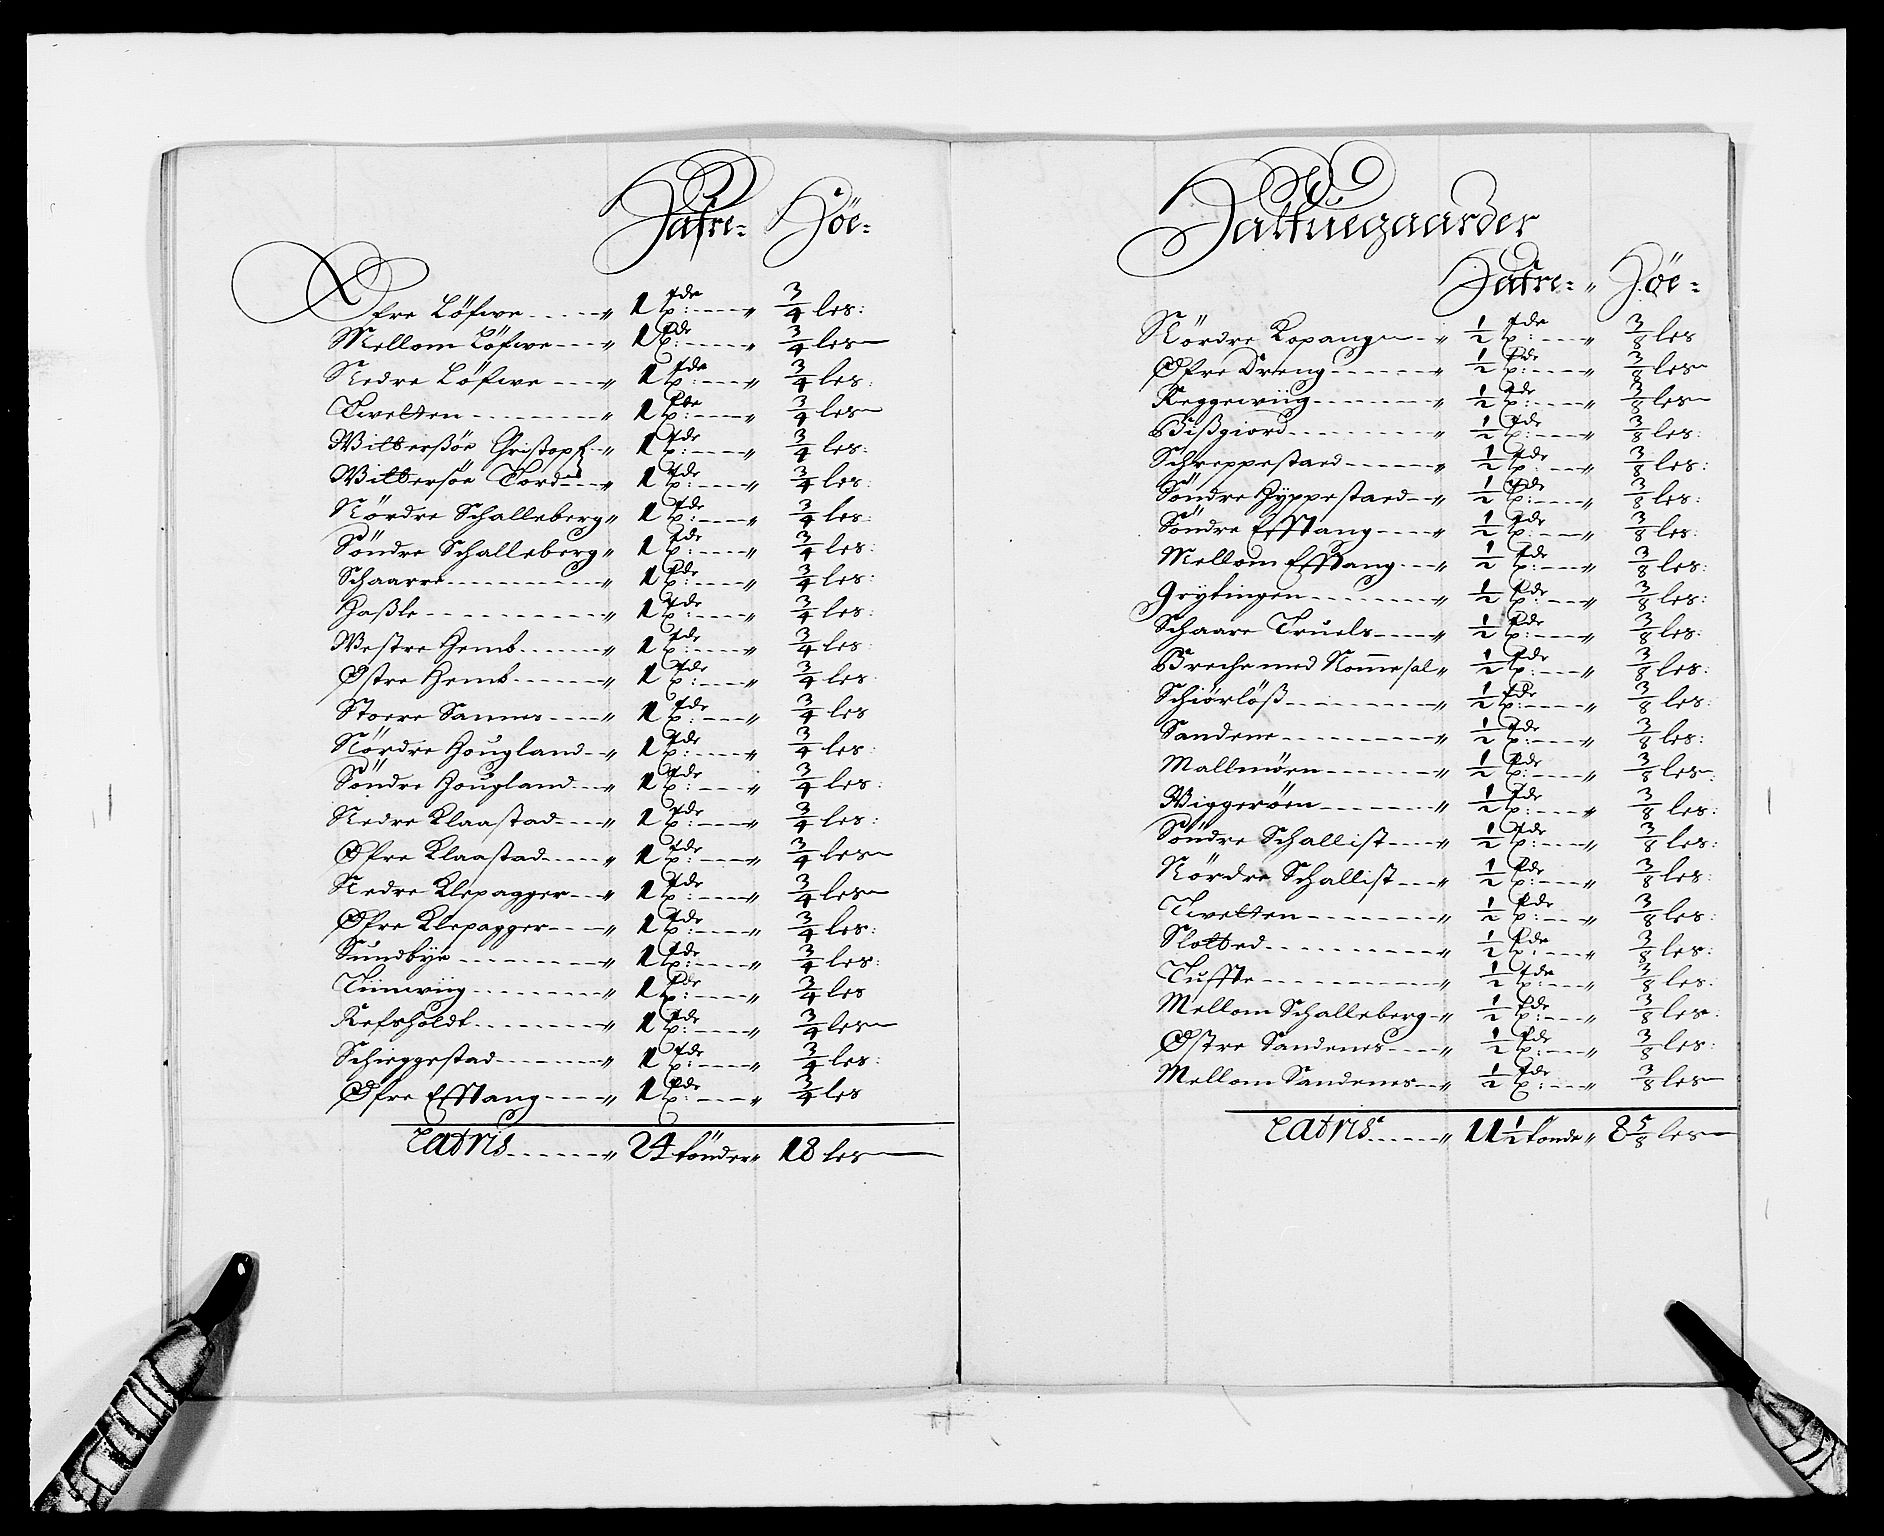 Hafre= Höe=
Øfre Löfwe ----- " 1 tde ---- " 3/4 les:
Mellom Löfwe --- " 1 tde ---- " 3/4 les
Nedre Löfwe --- " 1 tde ---- " 3/4 les:
Twetten -------- " 1 tde ---- " 3/4 les
Wittersöe Christoph " 1 tde ---- " 3/4 les:
Wittersöe Tord --- " 1 tde ---- " 3/4 les:
Nördre Schalleberg " 1 tde ---- " 3/4 les
Söndre Schalleberg " 1 tde ---- " 3/4 les:
Schaarre -------- " 1 tde ---- " 3/4 les:
Haßle --------- " 1 tde ---- " 3/4 les:
Westre Hemb ----- " 1 tde ---- " 3/4 les:
Østre Hemb ----- " 1 tde ---- " 3/4 les
Stoere Sannes ---- " 1 tde ---- " 3/4 les
Nördre Hougland -- " 1 tde ---- " 3/4 les:
Söndre Hougland -- " 1 tde ---- " 3/4 les:
Nedre Klaastad --- " 1 tde ---- " 3/4 les:
Øfre Klaastad ---- " 1 tde ---- " 3/4 les
Nedre Klepagger -- " 1 tde ---- " 3/4 les
Øfre Klepagger --- " 1 tde ---- " 3/4 les:
Sundbye -------- " 1 tde ---- " 3/4 les:
Timwiig -------- " 1 tde ---- " 3/4 les
Refsholdt ------- " 1 tde ---- " 3/4 les
Schreggestad ------ " 1 tde ---- " 3/4 les:
Øfre Efftang ---- " 1 tde ---- " 3/4 les
Latris ------ " 24 tönder " 18 les
Halfuegaarder
Hafre= " Höe=
Nördre Kopang -- " 1/2 tde ---- " 3/8 les
Øfre Dreng ------ " 1/2 tde ---- " 3/8 les
Reggewiig ------- " 1/2 tde ---- " 3/8 les
Bißgiord -------- " 1/2 tde ---- " 3/8 les:
Schreppestaed ----- " 1/2 tde ---- " 3/8 les:
Söndre Hyppestaed -- " 1/2 tde ---- " 3/8 les:
Söndre Efftang ---- " 1/2 tde ---- " 3/8 les:
Mellom Efftang --- " 1/2 tde ---- " 3/8 les:
Grytingen ------- " 1/2 tde ---- " 3/8 les:
Schaare Truels ---- " 1/2 tde ---- " 3/8 les:
Breche med Nommesal " 1/2 tde ---- " 3/8 les:
Schiörlöß -------- " 1/2 tde ---- " 3/8 les:
Sandene -------- " 1/2 tde ---- " 3/8 les:
Mallmöen ------- " 1/2 tde ---- " 3/8 les:
Wiggeröen ------- " 1/2 tde ---- " 3/8 les:
Söndre Schallist --- " 1/2 tde ---- " 3/8 les:
Nördre Schallist --- " 1/2 tde ---- " 3/8 les:
Twetten -------- " 1/2 tde ---- " 3/8 les:
Slotted --------- " 1/2 tde ---- " 3/8 les:
Tuffte --------- " 1/2 tde ---- " 3/8 les:
Mellom Schalleberg " 1/2 tde ---- " 3/8 les:
Østre Sandenes ---- " 1/2 tde ---- " 3/8 les:
Mellom Sandenes -- " 1/2 tde ---- " 3/8 les
Latris ------ " 11 1/2 tönde " 8 5/8 les